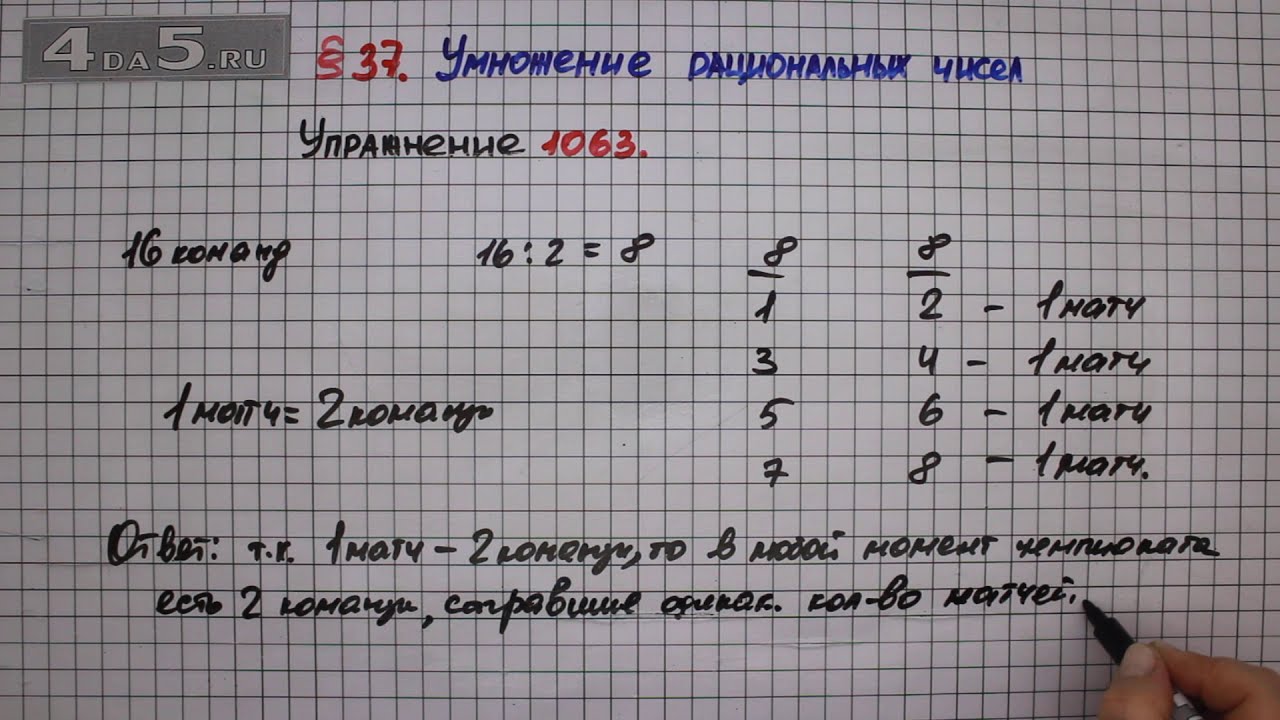 4DA5.RU
§ 37. Умножение рациональных чисел
Упражнение 1063.
16 команд 16 : 2 = 8 8 8
1 2 - 1 матч
3 4 - 1 матч
1 матч = 2 команды 5 6 - 1 матч
7 8 - 1 матч.
Ответ: т.к. 1 матч - 2 команды, то в любой момент чемпионата
есть 2 команды, сыгравшие одинак. кол-во матчей.